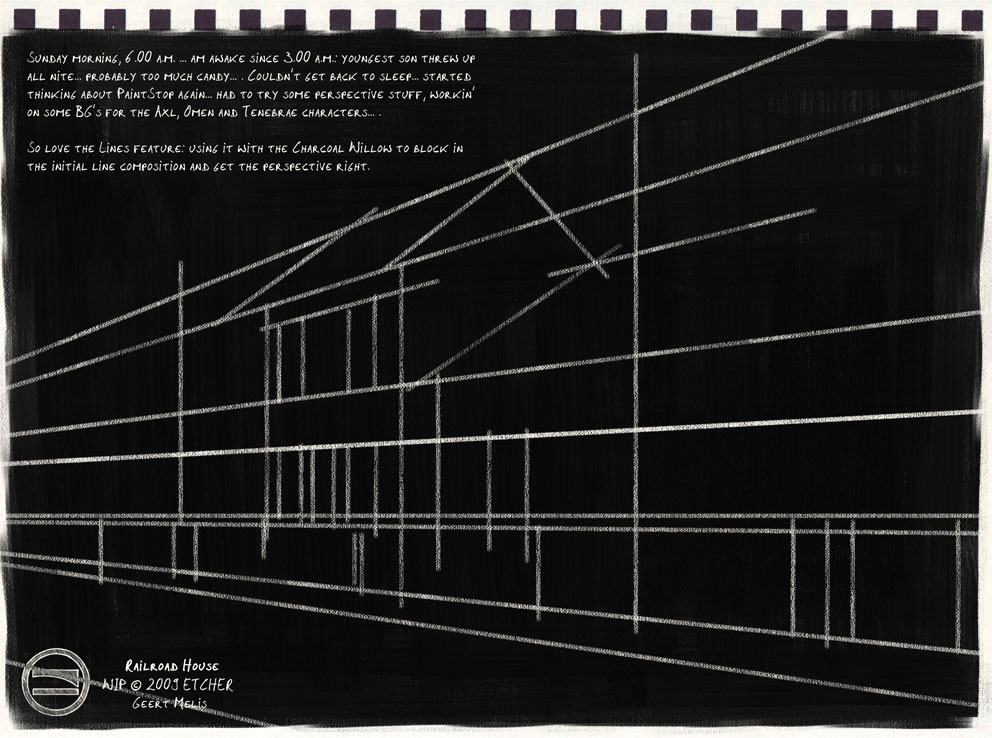 Sunday morning, 6.00 a.m. ... am awake since 3.00 a.m.: youngest son threw up
all nite... probably too much candy... . Couldn't get back to sleep... started
thinking about PaintStop again... had to try some perspective stuff, workin'
on some BG's for the Axl, Omen and Tenebrae characters... .
So love the Lines feature: using it with the Charcoal Willow to block in
the initial line composition and get the perspective right.
Railroad House
WIP © 2009 ETCHER
Geert Melis